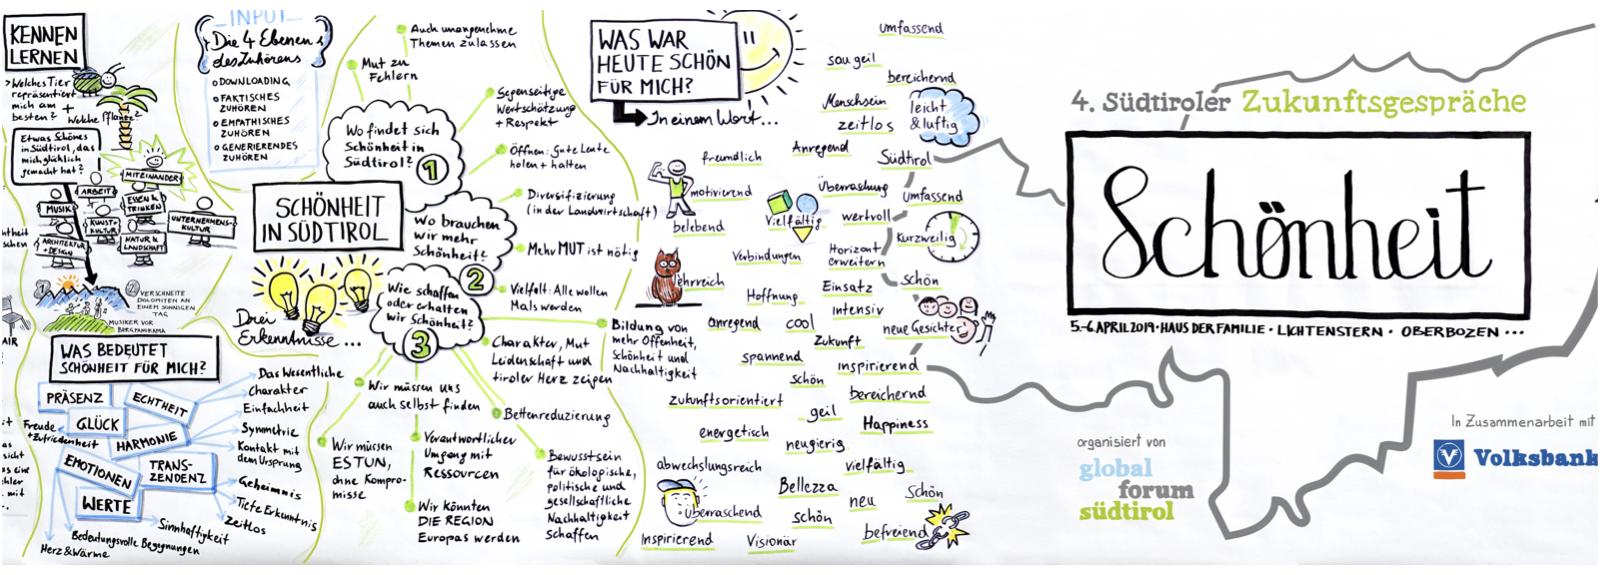 KENNEN
LERNEN
> Welches Tier
repräsentiert
mich am +
besten? Welche Pflanze?
Etwas Schönes
in Südtirol, das
mich glücklich
gemacht hat?
MITEINANDER
ARBEIT
ESSEN &
TRINKEN
MUSIK
KUNST+
KULTUR
UNTERNEHMENS-
KULTUR
ARCHITEKTUR
+ DESIGN
NATUR &
LANDSCHAFT
1
2 VERSCHNEITE
DOLOMITEN AN
EINEM SONNIGEN
TAG
MUSIKER VOR
BERGPANORAMA
WAS BEDEUTET
SCHÖNHEIT FÜR MICH?
PRÄSENZ
ECHTHEIT
GLÜCK
HARMONIE
EMOTIONEN
TRANS-
ZENDENZ
WERTE
Freude
+Zufriedenheit
Das Wesentliche
Charakter
Einfachheit
Symmetrie
Kontakt mit
dem Ursprung
Geheimnis
Tiefe Erkenntnis
Zeitlos
Sinnhaftigkeit
Bedeutungsvolle Begegnungen
Herz & Wärme
INPUT
Die 4 Ebenen
des Zuhörens
DOWNLOADING
FAKTISCHES
ZUHÖREN
EMPATHISCHES
ZUHÖREN
GENERIERENDES
ZUHÖREN
SCHÖNHEIT
IN SÜDTIROL
Drei
Erkenntnisse ...
Wo findet sich
Schönheit in
Südtirol?
1
Auch unangenehme
Themen zulassen
Mut zu
Fehlern
Gegenseitige
Wertschätzung
+ Respekt
Wo brauchen
wir mehr
Schönheit?
2
Öffnen: Gute Leute
holen + halten
Diversifizierung
(in der Landwirtschaft)
Mehr MUT ist nötig
Vielfalt: Alle wollen
Mals werden
Wie schaffen
oder erhalten
wir Schönheit?
3
Bildung von
mehr Offenheit,
Schönheit und
Nachhaltigkeit
Charakter, Mut
Leidenschaft und
tiroler Herz zeigen
Wir müssen uns
auch selbst finden
Bettenreduzierung
Wir müssen
ES TUN,
ohne Kompro-
misse
Verantwortlicher
Umgang mit
Ressourcen
Wir könnten
DIE REGION
Europas werden
Bewusstsein
für ökologische,
politische und
gesellschaftliche
Nachhaltigkeit
schaffen
WAS WAR
HEUTE SCHÖN
FÜR MICH?
In einem Wort...
umfassend
sau geil
bereichernd
Menschsein
leicht
& luftig
zeitlos
freundlich
Anregend
Südtirol
motivierend
Überraschung
umfassend
vielfältig
wertvoll
belebend
Kurzweilig
Verbindungen
Horizont
erweitern
lehrreich
Hoffnung
Einsatz
Schön
anregend
cool
intensiv
neue Gesichter
Zukunft
spannend
inspirierend
schön
zukunftsorientiert
bereichernd
geil
Happiness
energetisch
neugierig
abwechslungsreich
vielfältig
Bellezza
neu
Schön
überraschend
schön
befreiend
Inspirierend
Visionär
4. Südtiroler Zukunftsgespräche
Schönheit
5.-6. APRIL 2019 · HAUS DER FAMILIE · LICHTENSTERN · OBERBOZEN ...
organisiert von
global
forum
südtirol
In Zusammenarbeit mit
Volksbank